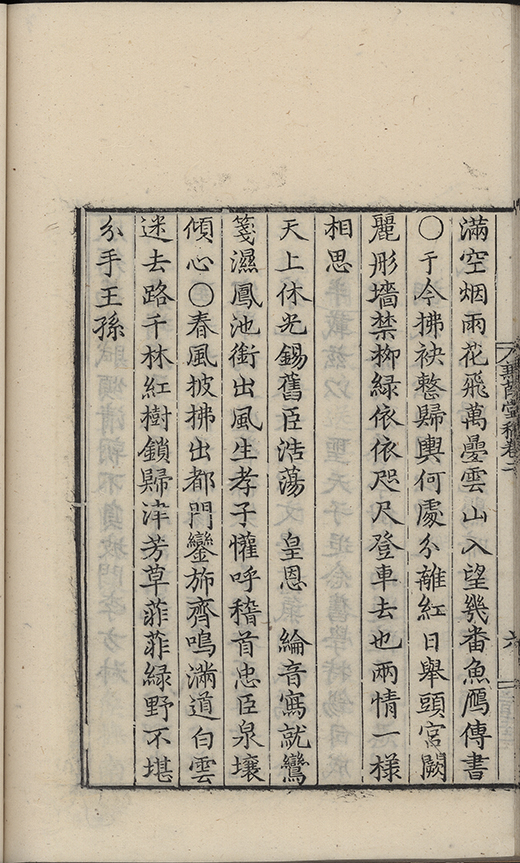 滿空烟雨花飛萬疊雲山入望幾畨魚鴈傳書
〇于今拂袂整歸輿何處分離紅日舉頭宮闕
麗彤墻禁桞綠依依咫尺登車去也兩情一樣
相思
天上休光錫舊臣浩蕩　皇恩　綸音寫就鸞
箋濕鳳池銜出風生孝子懽呼稽首忠臣泉壤
傾心〇春風披拂出都門鑾旂齊鳴滿道白雲
迷去路千林紅樹鎖歸津芳草菲菲綠野不堪
分手王孫